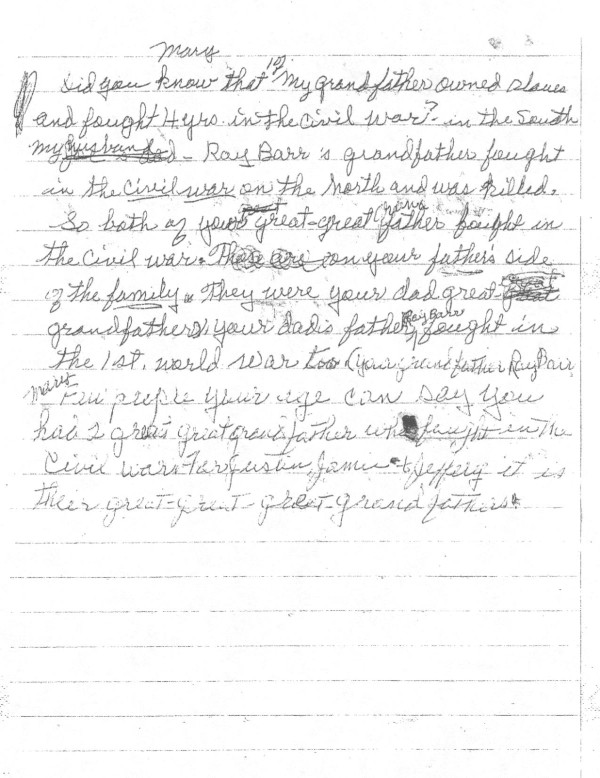 Mary
Did you know that my grandfather owned slaves
and fought 4 yrs. in the Civil war? - in the South
my husband - Ray Barr's grandfather fought
in the Civil war on the North and was killed.
So both of your great-great grand father fought in
the Civil war. Those are on your father's side
of the family. They were your dad great-great
grandfathers, your dad's father Ray Barr fought in
the 1st. world war too (your grandfather Ray Barr
Mary - Few people your age can say you
had 2 great great grandfather who fought in the
Civil war. For Justin Jamie & Jeffery it is
their great-great-great-grandfathers.